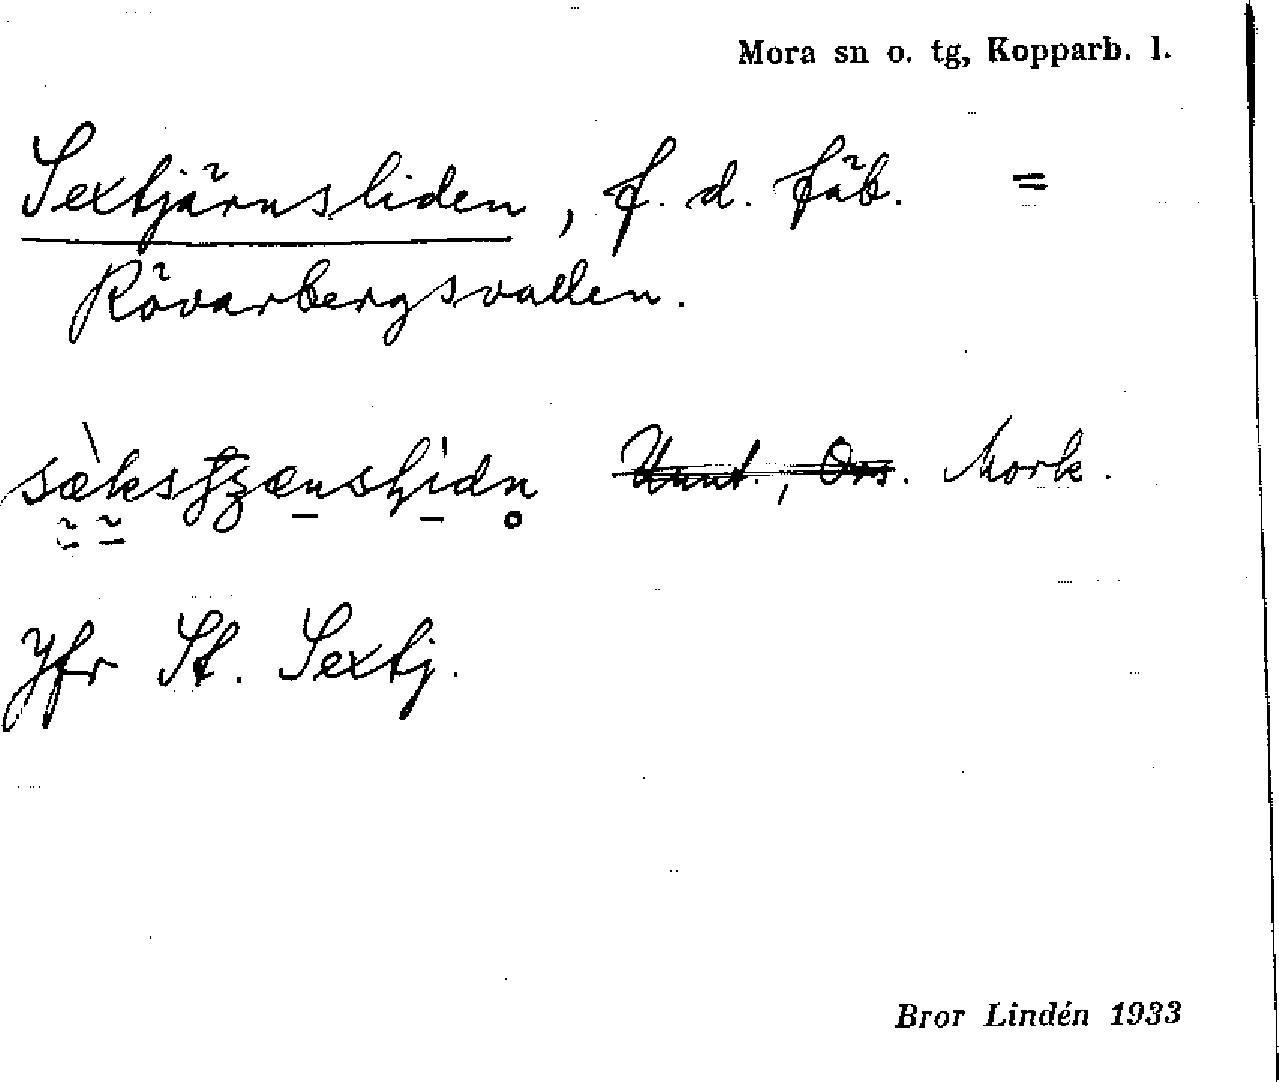 Mora sn o. tg, Kopparb. l.
Sextjärnsliden, f. d. fäb. =
Rövarbergsvallen.
Mork.
Jfr St. Sextj.
Bror Lindén 1933